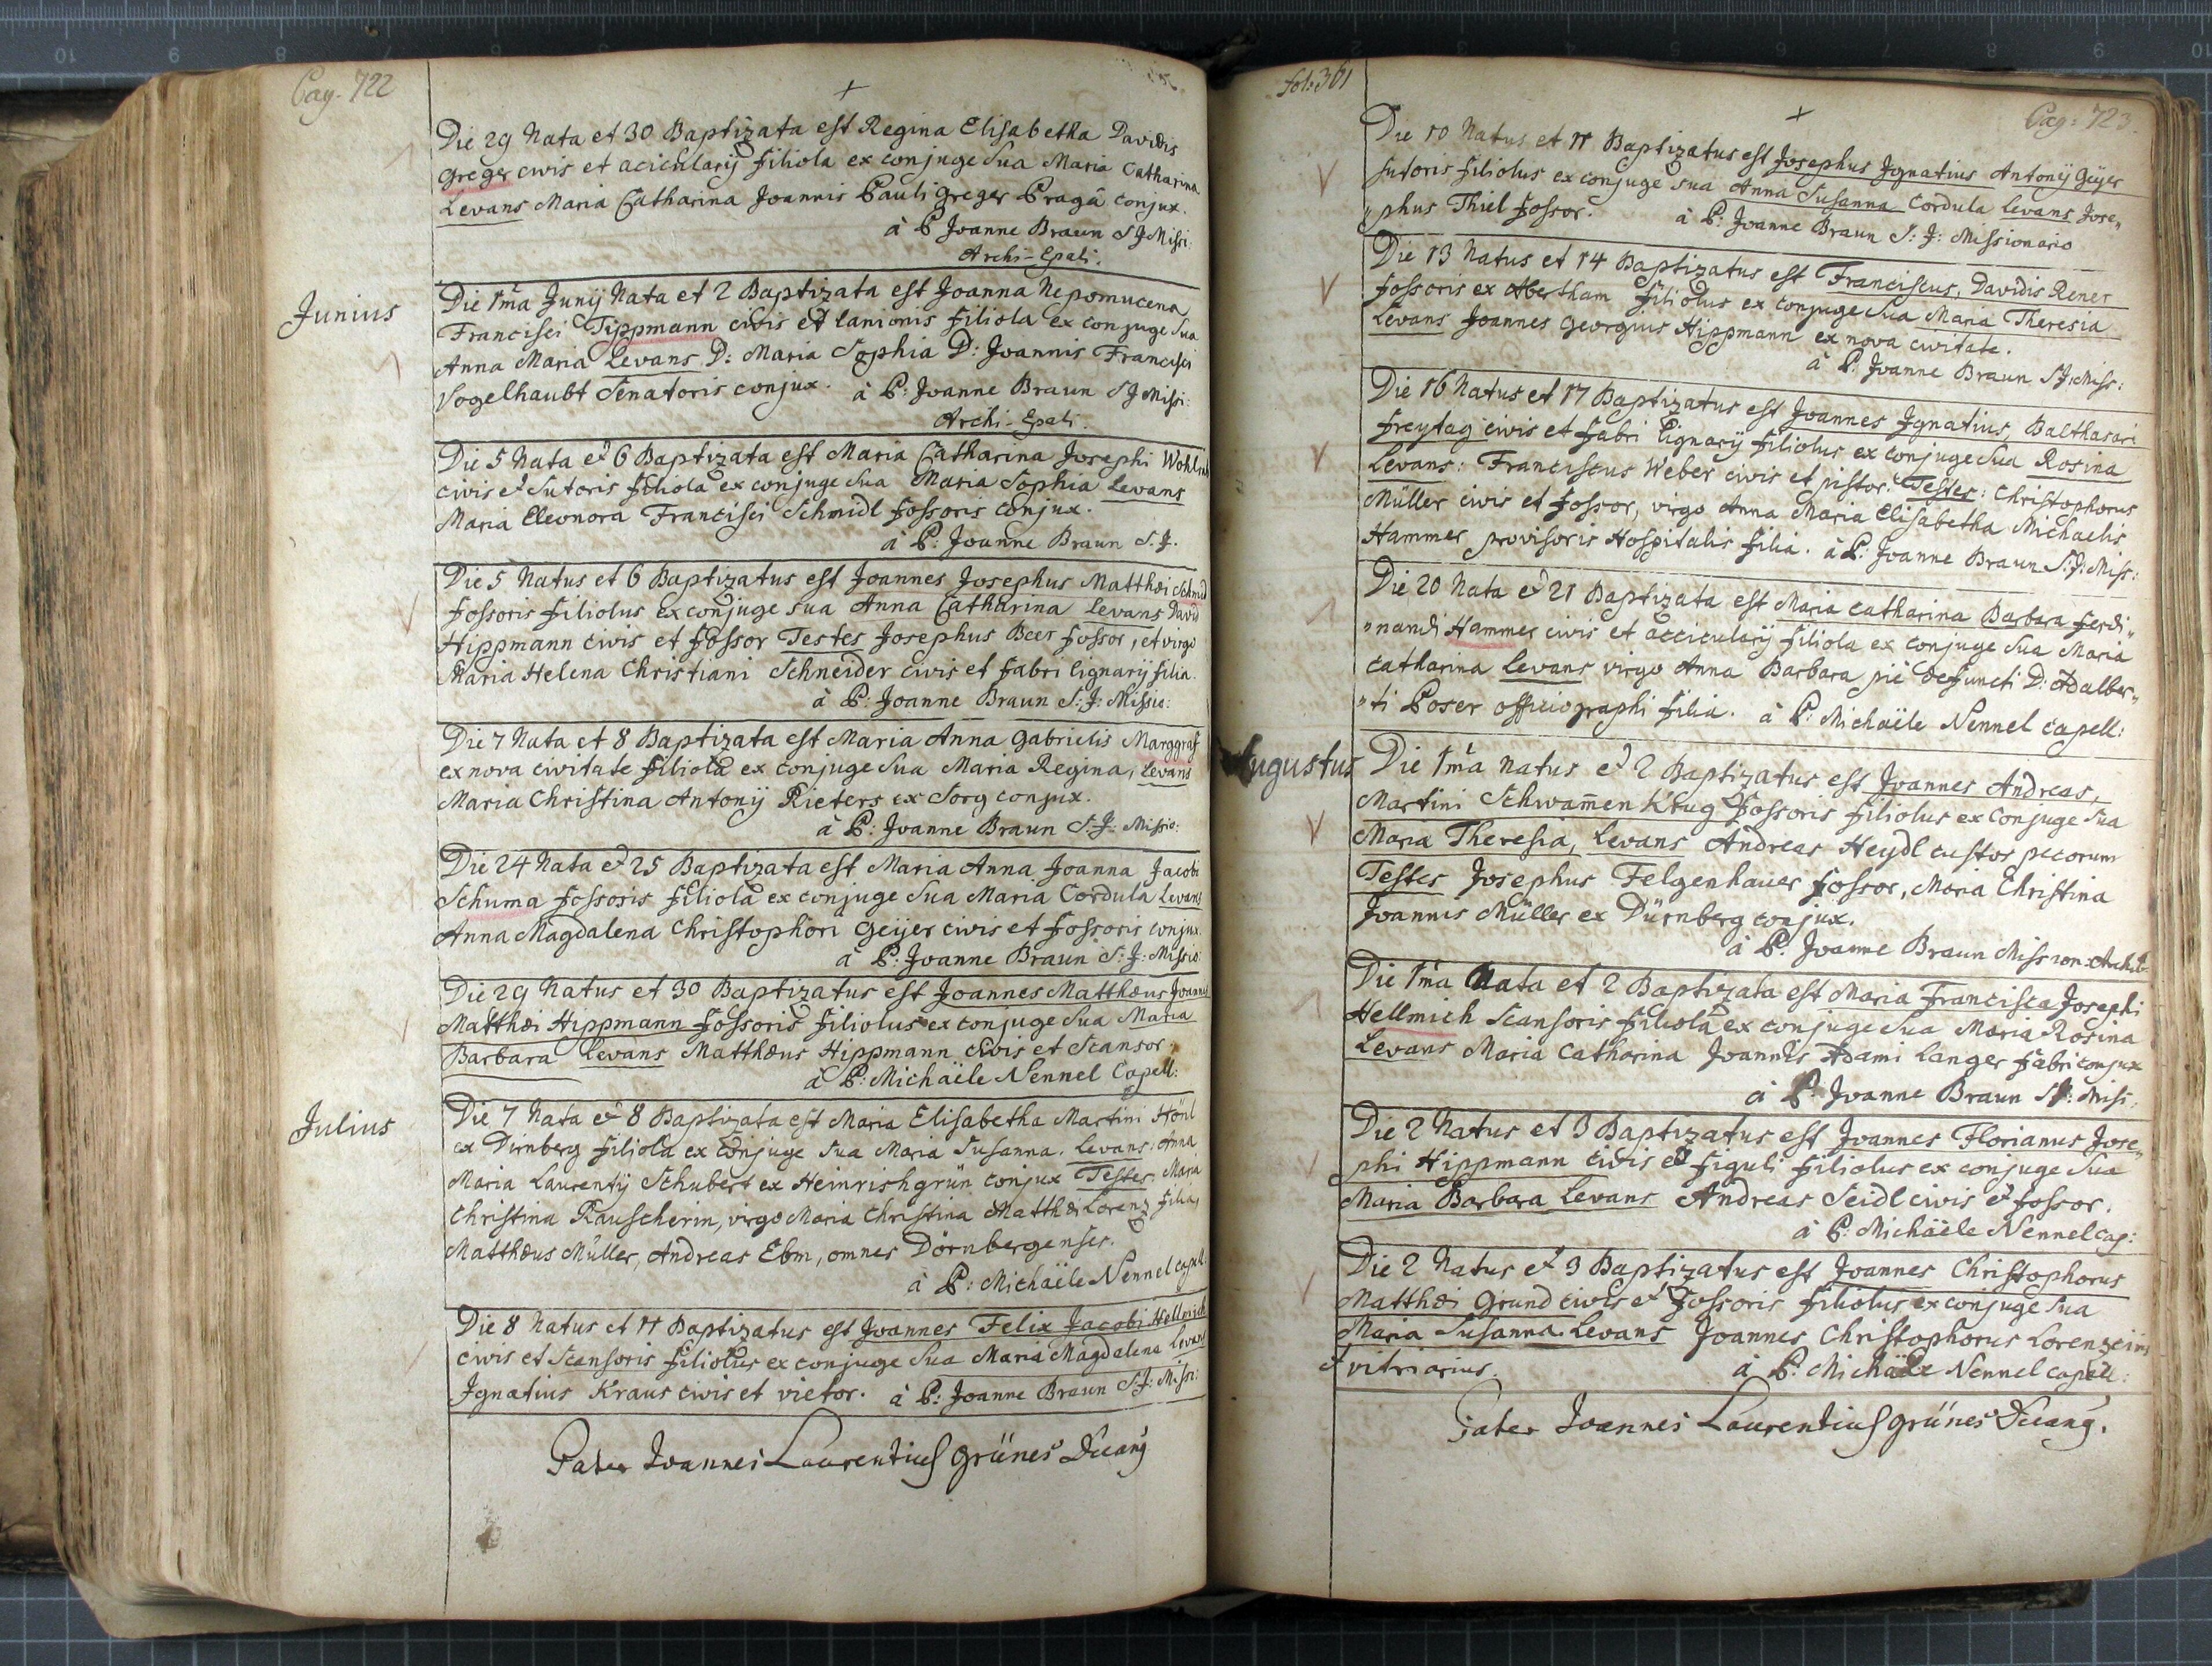 Pag. 722
Die 29 Nata et 30 Baptizata est Regina Elisabetha Davidis
Greger civis et acicularij filiola ex conjuge sua Maria Catharina
Levans Maria Catharina Joannis Pauli Greger Pragâ conjux.
à P Joanne Braun S J Missi:
Archi-Epali.
Junius
Die 1ma Junij Nata et 2 Baptizata est Joanna Nepomucena
Francisci Tippmann civis et lanionis filiola ex conjuge sua
Anna Maria Levans D: Maria Sophia D: Joannis Francisci
Vogelhaubt Senatoris conjux. à P: Joanne Braun S J Missi:
Archi-Epali.
Die 5 Nata et 6 Baptizata est Maria Catharina Josephi
civis et sutoris filiola ex conjuge sua Maria Sophia Levans
Maria Eleonora Francisci Schmidl fossoris conjux.
à P: Joanne Braun S. J.
Die 5 Natus et 6 Baptizatus est Joannes Josephus Matthæi Schmid
fossoris filiolus ex conjuge sua Anna Catharina Levans David
Hippmann civis et fossor Testes Josephus Beer fossor, et virgo
Maria Helena Christiani Schneider civis et fabri lignarij filia.
à P: Joanne Braun S: J: Missio:
Die 7 Nata et 8 Baptizata est Maria Anna Gabrielis Marggraf
ex nova civitate filiola ex conjuge sua Maria Regina, Levans
Maria Christina Antonij Rieters ex Sorg conjux.
à P: Joanne Braun S: J: Missio:
Die 24 Nata et 25 Baptizata est Maria Anna Joanna Jacobi
Schuma fossoris filiola ex conjuge sua Maria Cordula Levans
Anna Magdalena Christophori Geijer civis et fossoris conjux.
à P: Joanne Braun S: J: Missio:
Die 29 Natus et 30 Baptizatus est Joannes Matthæus Joannis
Matthæi Hippmann fossoris filiolus ex conjuge sua Maria
Barbara Levans Matthæus Hippmann civis et scansor.
à P: Michaële Nennel Capell:
Julius
Die 7 Nata et 8 Baptizata est Maria Elisabetha Martini Hönl
ex Dirnberg filiola ex conjuge sua Maria Susanna. Levans: Anna
Maria Laurentij Schubert ex Heinrishgrün conjux Testes Maria
Christina Rauscherin, virgo Maria Christina Matthæi Lorenz filia,
Matthæus Müller, Andreas Ebm, omnes Dörnbergenses.
à P: Michaële Nennel Capell:
Die 8 Natus et 11 Baptizatus est Joannes Felix Jacobi Hellmich
civis et scansoris filiolus ex conjuge sua Maria Magdalena Levans
Ignatius Kraus civis et vietor. à P: Joanne Braun S: J: Missi:
Pater Joannes Laurentius Grünes Decang
fol: 361
Pag: 723.
Die 10 Natus et 11 Baptizatus est Josephus Ignatius Antonij Geijer
sutoris filiolus ex conjuge sua Anna Susanna Cordula Levans Jose„
„phus Thiel fossor. à P: Joanne Braun S: J: Missionario
Die 13 Natus et 14 Baptizatus est Franciscus, Davidis Rener
fossoris ex Abertham filiolus ex conjuge sua Maria Theresia
Levans Joannes Georgius Hippmann ex nova civitate.
à P: Joanne Braun S J: Miss:
Die 16 Natus et 17 Baptizatus est Joannes Ignatius, Balthasari
Freytag civis et fabri lignarij filiolus ex conjuge sua Rosina
Levans: Franciscus Weber civis et pistor. Testes: Christophorus
Müller civis et fossor, virgo Anna Maria Elisabetha Michaelis
Hammer provisoris Hospitalis filia. à P: Joanne Braun S: J: Miss:
Die 20 Nata et 21 Baptizata est Maria Catharina Barbara Ferdi„
„nandi Hammer civis et accicularij filiola ex conjuge sua Maria
Catharina Levans virgo Anna Barbara piè defuncti D: Adalber„
„ti Poser officiographi filia. à P: Michaële Nennel Capell:
Augustus
Die 1ma Natus et 2 Baptizatus est Joannes Andreas,
Martini Schwam̄enkrug fossoris filiolus ex conjuge sua
Maria Theresia, Levans Andreas Heydl custos pecorum
Testes Josephus Felgenhauer fossor, Maria Christina
Joannis Müller ex Dürnberg conjux.
à P: Joanne Braun Mission:
Die 1ma Nata et 2 Baptizata est Maria Francisca Josephi
Hellmich scansoris filiola ex conjuge sua Maria Rosina
Levans Maria Catharina Joannis Adami Langer fabri conjux
à P: Joanne Braun S J: Missi:
Die 2 Natus et 3 Baptizatus est Joannes Florianus Jose„
phi Hippmann civis et figuli filiolus ex conjuge sua
Maria Barbara Levans Andreas Seidl civis et fossor.
à P: Michaële Nennel Cap:
Die 2 Natus et 3 Baptizatus est Joannes Christophorus
Matthæi Grund civis et fossoris filiolus ex conjuge sua
Maria Susanna. Levans Joannes Christophorus Lorenz civis
et vitriarius. à P: Michaële Nennel Capell:
Pater Joannes Laurentius Grünes Decang.